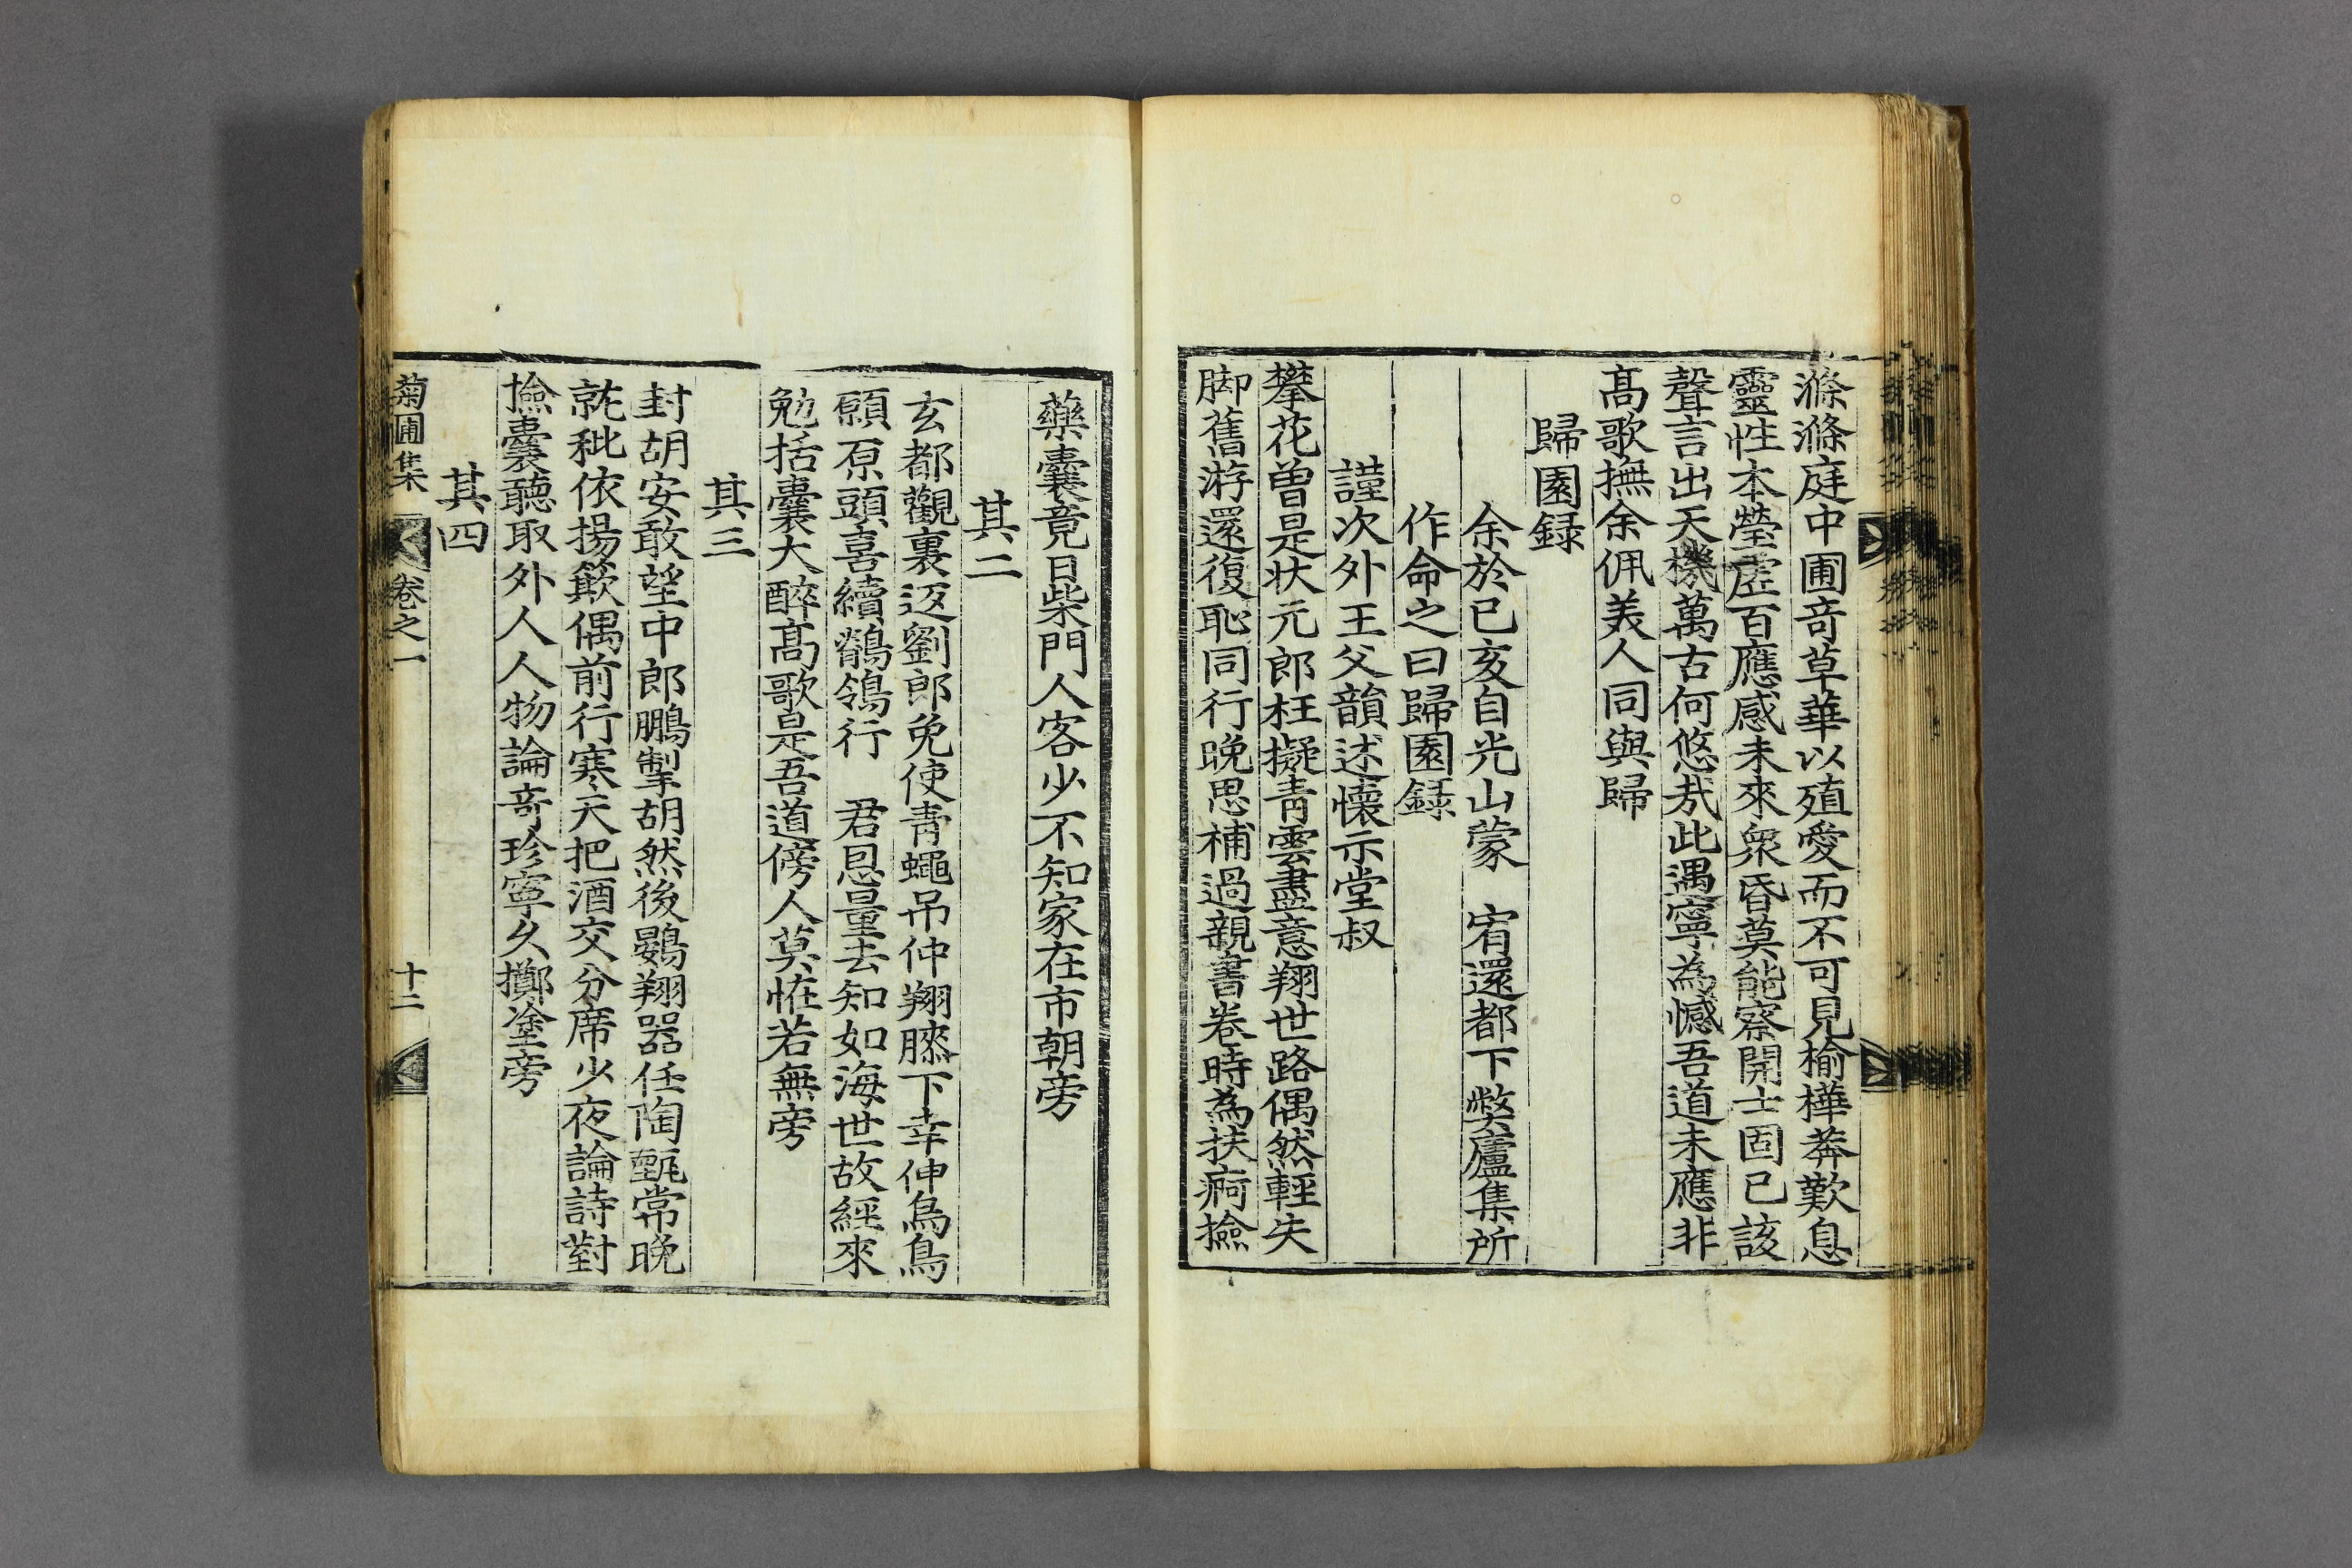 滌滌庭中圃奇草華以殖愛而不可見楡樺莽歎息
靈性本瑩虛百應感未來衆昏莫能察開士固已該
聲言出天機萬古何悠哉此遇寧為憾吾道未應非
高歌撫余佩美人同與歸
歸園録
余於已亥自光山蒙　宥還都下弊廬集所
作命之曰歸園録
謹次外王父韻述懷示堂叔
攀花曾是状元郎枉擬青雲盡意翔世路偶然輕失
脚舊游還復恥同行晩思補過親書卷時為扶痾撿
藥囊竟日柴門人客少不知家在市朝旁
其二
玄都觀裏返劉郎免使青蠅吊仲翔臙下幸伸烏鳥
願原頭喜續鶺鴒行　君恩量去知如海世故經來
勉括囊大醉高歌是吾道傍人莫恠若無旁
其三
封胡安敢望中郎鵬掣胡然後鷃翔器任陶甄常晩
就秕依揚簸偶前行寒天把酒交分席少夜論詩對
撿囊聽取外人人物論奇珍寧久擲塗旁
其四
菊圃集　卷之一　十二